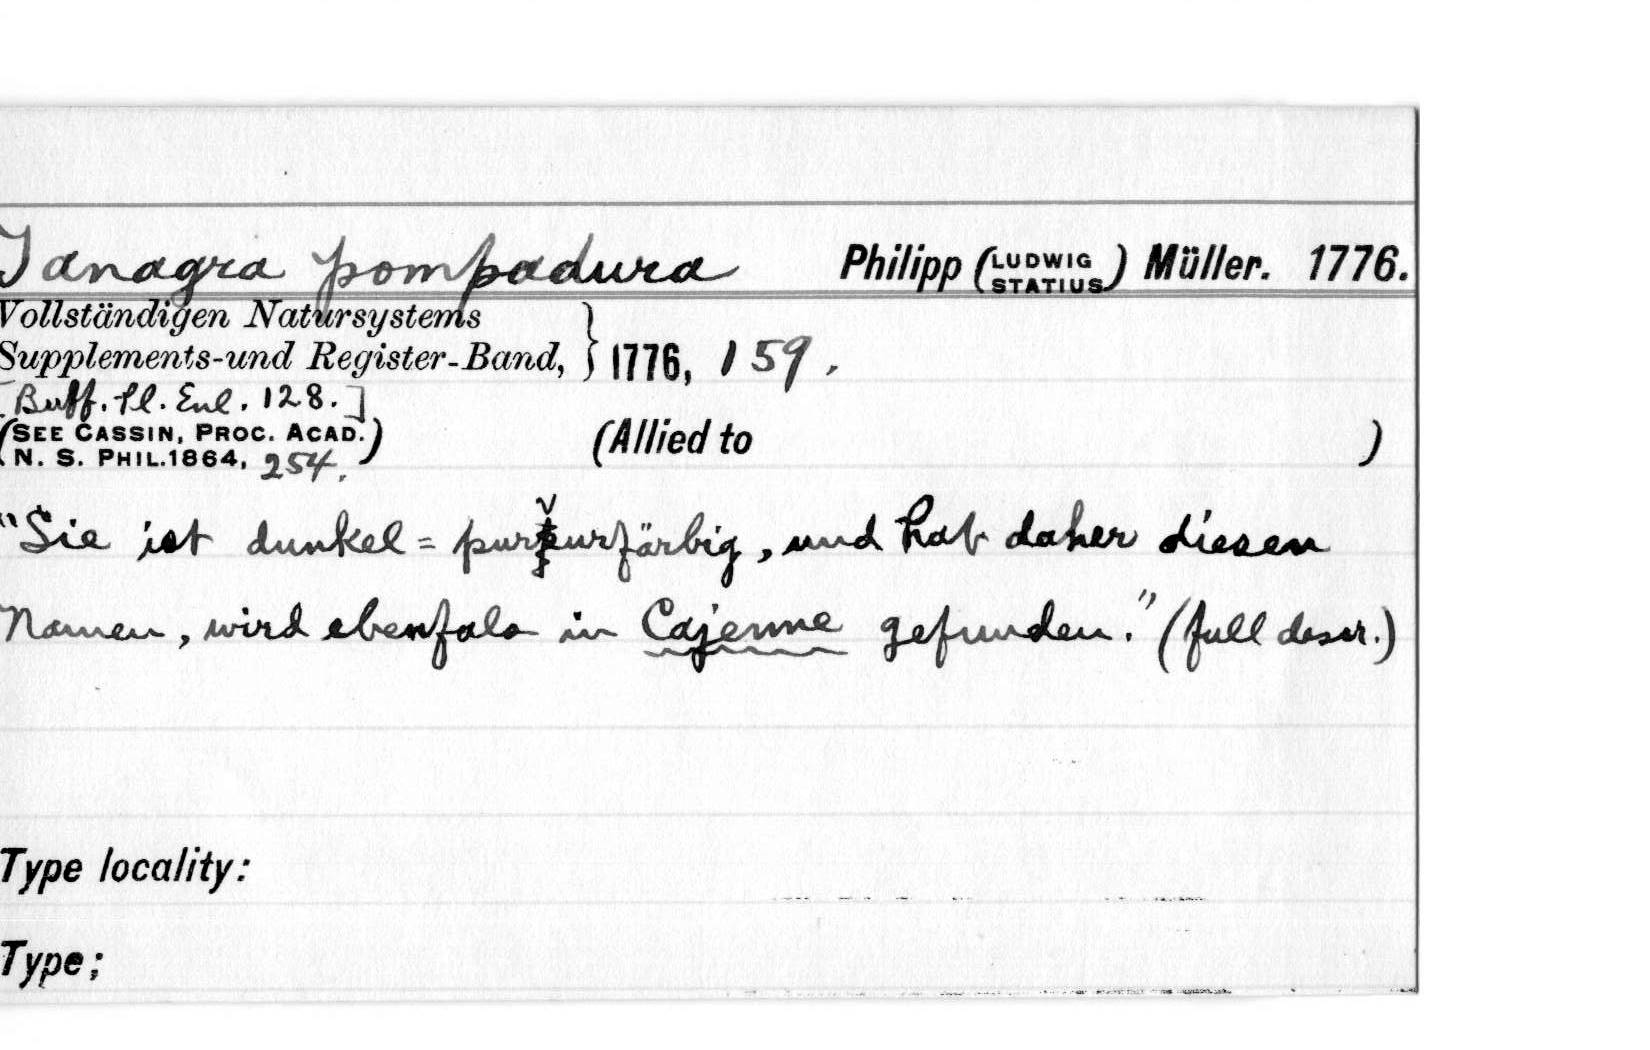 Tanagra pompadura Philipp (LUDWIG STATIUS) Müller. 1776.
Vollständigen Natursystems
Supplements-und Register-Band, } 1776, 159.
[Buff. Pl. Enl. 128.]
(SEE CASSIN, PROC. ACAD. (Allied to )
N. S. PHIL. 1864, 254.)
"Sie ist dunkel = purpurfärbig, und hat daher diesen
Namen, wird ebenfals in Cajenne gefunden." (full descr.)
Type locality:
Type;